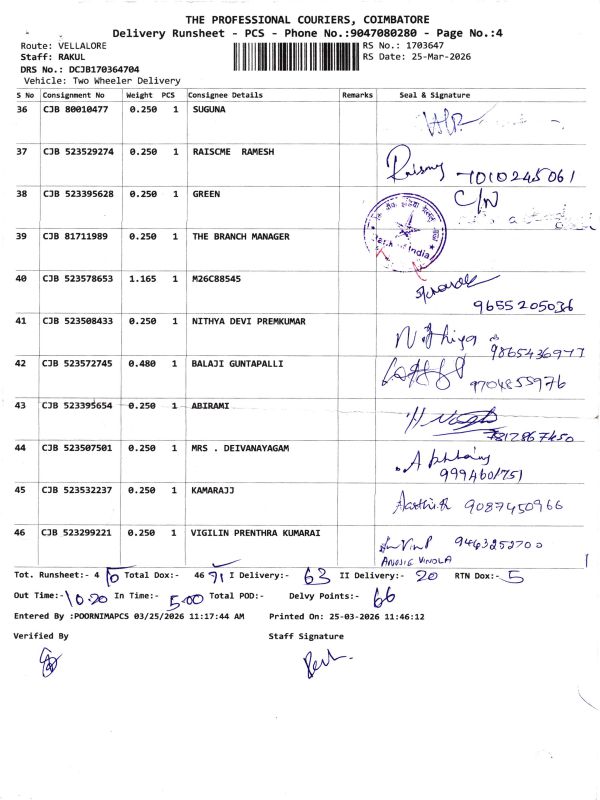 THE PROFESSIONAL COURIERS, COIMBATORE
Delivery Runsheet - PCS - Phone No.:9047080280 - Page No.:4
Route: VELLALORE RS No.: 1703647
Staff: RAKUL RS Date: 25-Mar-2026
DRS No.: DCJB170364704
Vehicle: Two Wheeler Delivery
S No Consignment No Weight PCS Consignee Details Remarks Seal & Signature
36 CJB 80010477 0.250 1 SUGUNA
37 CJB 523529274 0.250 1 RAISCME RAMESH
7010245061
38 CJB 523395628 0.250 1 GREEN C/N
39 CJB 81711989 0.250 1 THE BRANCH MANAGER
Bank of India
40 CJB 523578653 1.165 1 M26C88545
9655205036
41 CJB 523508433 0.250 1 NITHYA DEVI PREMKUMAR Nithiya
9865436977
42 CJB 523572745 0.480 1 BALAJI GUNTAPALLI
9704855976
43 CJB 523395654 0.250 1 ABIRAMI
7812867450
44 CJB 523507501 0.250 1 MRS . DEIVANAYAGAM
9994601751
45 CJB 523532237 0.250 1 KAMARAJJ Aarthi.R 9087450966
46 CJB 523299221 0.250 1 VIGILIN PRENTHRA KUMARAI 9463252700
VINOLA
Tot. Runsheet:- 4 Total Dox:- 46 71 I Delivery:- 63 II Delivery:- 20 RTN Dox:- 5
Out Time:- 10.20 In Time:- 5.00 Total POD:- Delvy Points:- 66
Entered By :POORNIMAPCS 03/25/2026 11:17:44 AM Printed On: 25-03-2026 11:46:12
Verified By Staff Signature